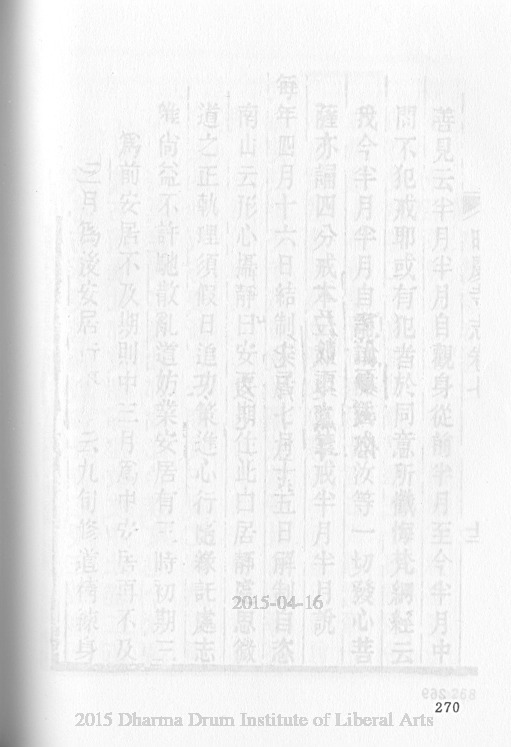 昭慶寺志卷十
善見云半月半月自觀身從前半月至今半月中
問不犯戒耶或有犯者於同意所懺悔梵網經云
我今半月半月自誦 汝等一切發心菩
薩亦誦四分戒本 戒半月半月說
每年四月十六日結制安居七月十五日解制自恣
南山云形心攝靜曰安要期住此曰居靜處思微
道之正軌理須假日追功策進心行隨緣託處志
唯尚益不許馳散亂道妨業安居有三時初期三
為前安居不及期則中三月為中安居再不及
三月為後安居 云九旬修道精練身
2015-04-16
269
270
2015 Dharma Drum Institute of Liberal Arts